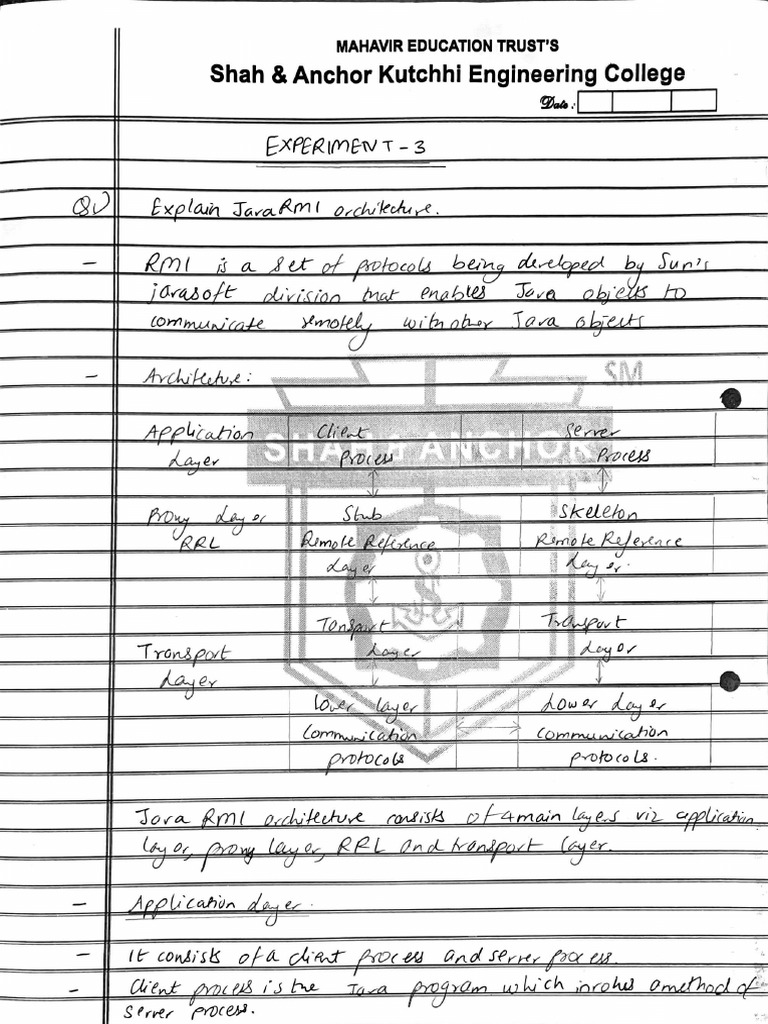 MAHAVIR EDUCATION TRUST'S
Shah & Anchor Kutchhi Engineering College
Date:
EXPERIMENT - 3
Q1) Explain Java RMI architecture.
- RMI is a set of protocols being developed by Sun's
javasoft division that enables Java objects to
communicate remotely with other Java objects
- Architecture:
SM
SHAH & ANCHOR
Application Client Server
Layer Process Process
Proxy Layer Stub Skeleton
RRL Remote Reference Remote Reference
Layer Layer.
Tonsport Transport
Transport Layer Layer
Layer
Lower layer Lower Layer
communication communication
protocols protocols.
Java RMI architecture consists of 4 main layers viz application
layer, proxy layer, RRL and transport layer.
- Application Layer.
- It consists of a client process and server process.
- Client process is the Java program which invokes a method of
server process.